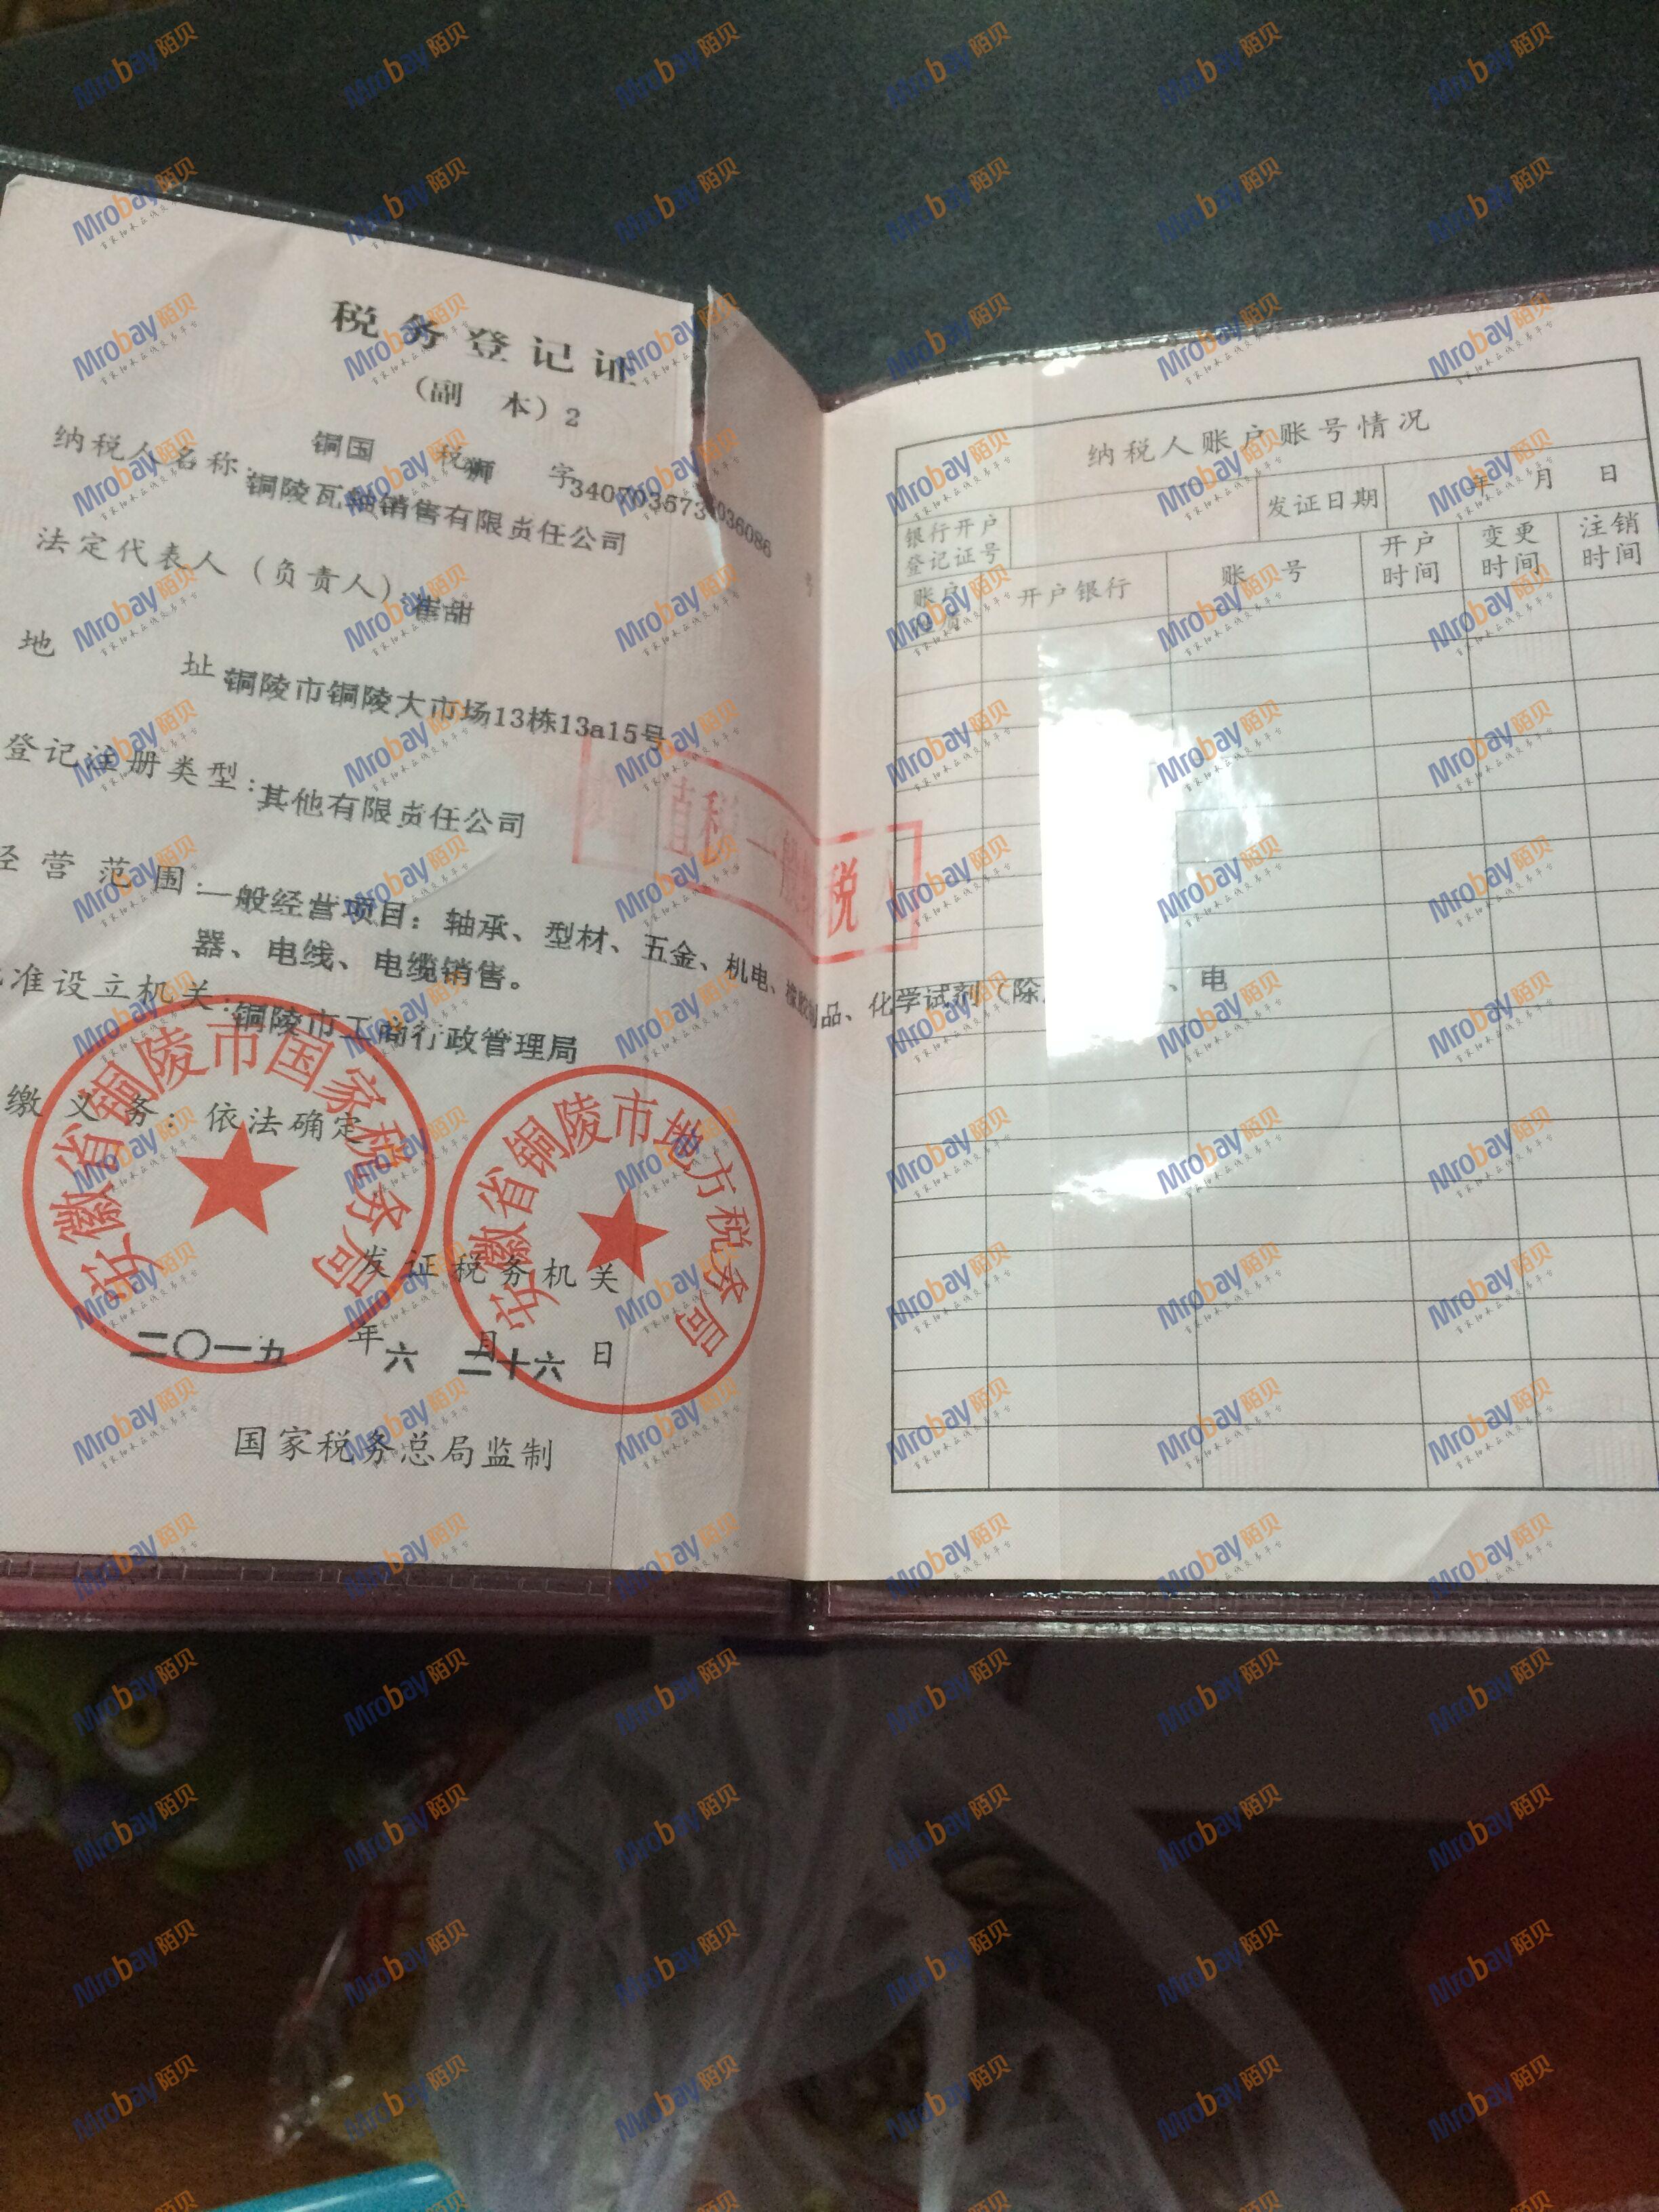 税务登记证
（副 本）2
铜国 税 狮 字 340703573036086 号
纳税人名称：铜陵瓦轴销售有限责任公司
法定代表人（负责人）：崔甜
地 址 铜陵市铜陵大市场13栋13a15号
登记注册类型：其他有限责任公司
经营范围：一般经营项目：轴承、型材、五金、机电、橡胶制品、化学试剂（除 、电
器、电线、电缆销售。
准设立机关：铜陵市工商行政管理局
缴义务：依法确定
安徽省铜陵市国家税务局
安徽省铜陵市地方税务局
发证税务机关
二〇一五 年 六 月 二十六 日
国家税务总局监制
增值税一般纳税人
纳税人账户账号情况
银行开户登记证号 发证日期 年 月 日
账户性质 开户银行 账 号 开户时间 变更时间 注销时间
Mrobay陌贝